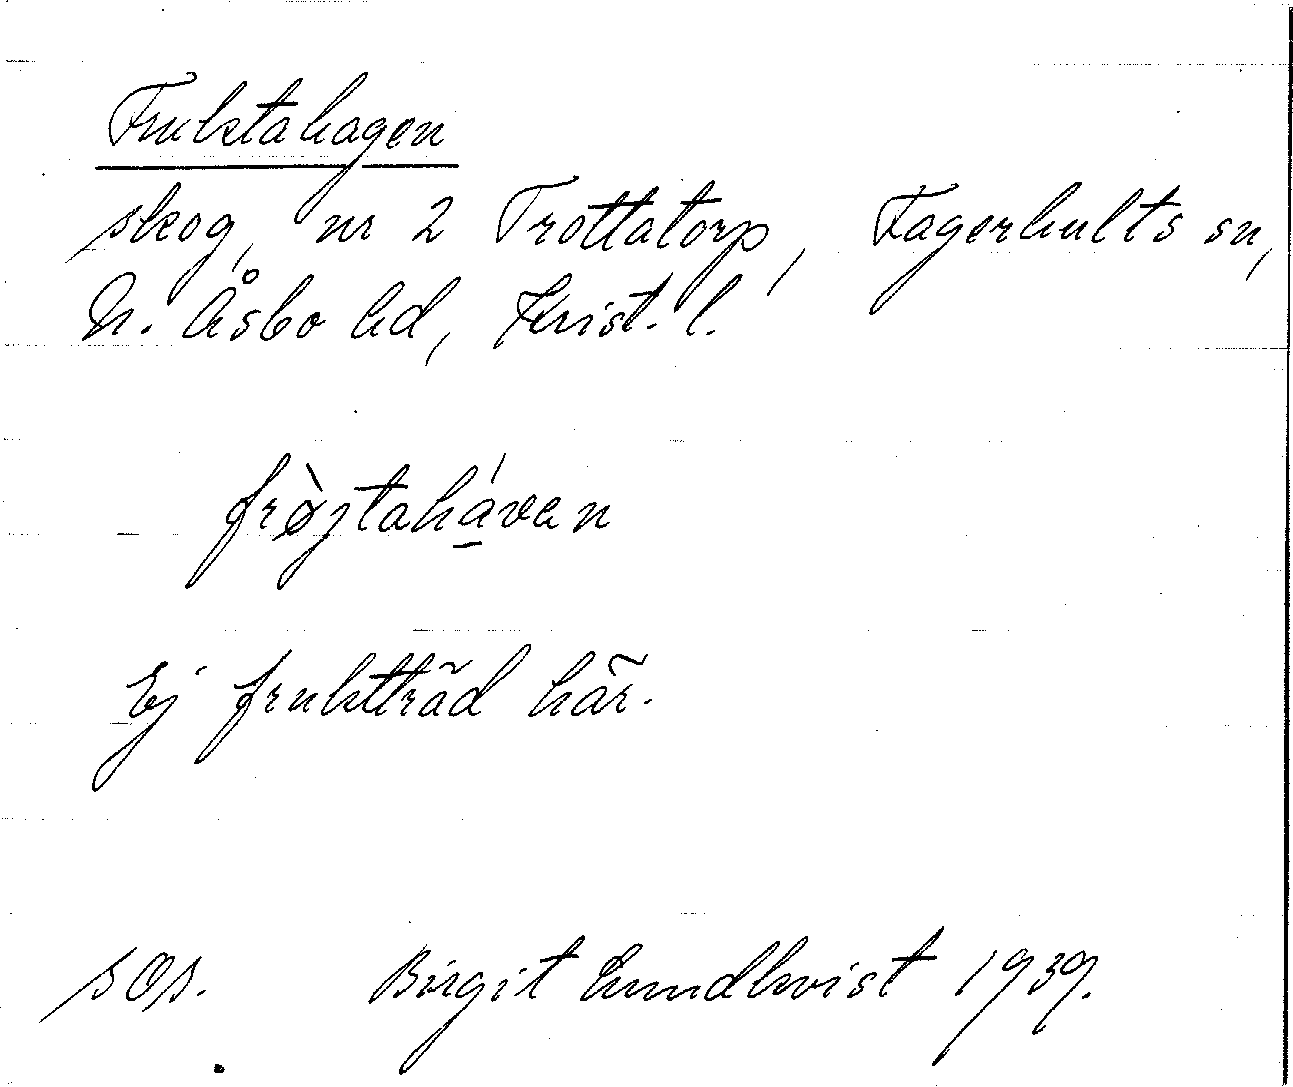 Fruktahagen
skog, nr 2 Trottatorp, Fagerhults sn,
N. Åsbo hd, Krist. l.
frø̀jtahá̱ven
Ej fruktträd här.
sOs. Birgit Lundkvist 1939.